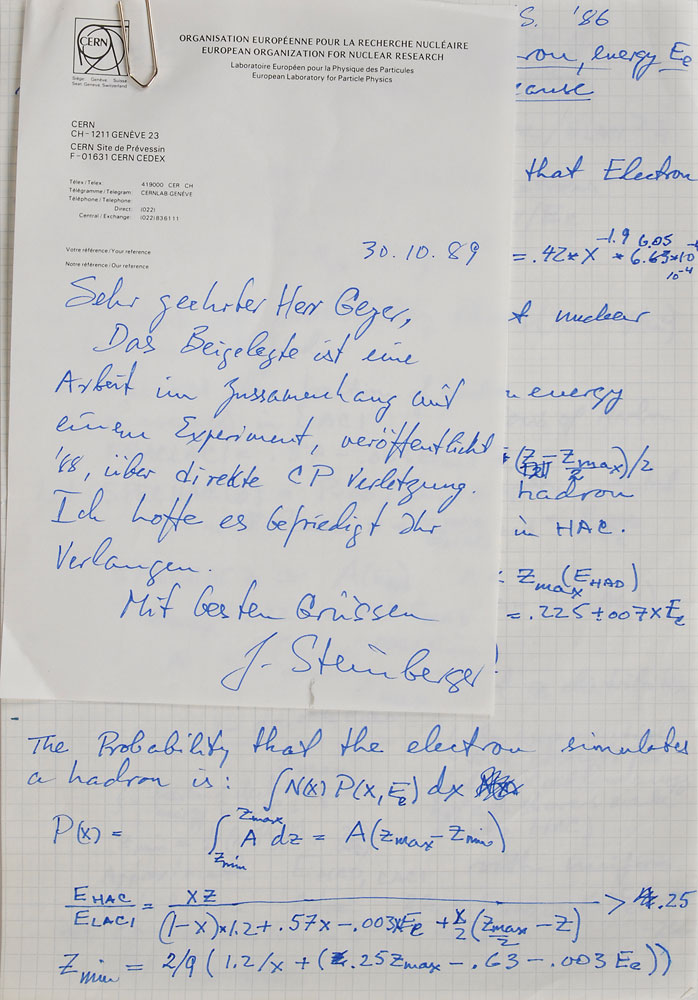 CERN
ORGANISATION EUROPÉENNE POUR LA RECHERCHE NUCLÉAIRE
EUROPEAN ORGANIZATION FOR NUCLEAR RESEARCH
Laboratoire Européen pour la Physique des Particules
European Laboratory for Particle Physics
Siège: Genève Suisse
Seat: Geneva Switzerland
CERN
CH-1211 GENÈVE 23
CERN Site de Prévessin
F-01631 CERN CEDEX
Télex/Telex: 419000 CER CH
Télégramme/Telegram: CERNLAB-GENÈVE
Téléphone/Telephone:
Direct: (022)
Central/Exchange: (022) 836111
Votre référence/Your reference
Notre référence/Our reference
30.10.89
Sehr geehrter Herr Geyer,
Das Beigelegte ist eine
Arbeit im Zussamenhang mit
einem Experiment, veröffentlicht
'88, über direkte CP Verletzung.
Ich hoffe es befriedigt Ihr
Verlangen.
Mit besten Grüssen
J. Steinberger
S. '86
energy Ee
cause
that Electron
= .42* X
nuclear
energy
(z - zmax)/2
hadron
in HAC.
Zmax(EHAD)
= .225 ± 007 x Ee
The Probability that the electron simulates
a hadron is: ∫N(x) P(x, Ee) dx
P(x) = ∫ Zmin Zmax A dz = A(Zmax - Zmin)
EHAC/ELAC1 = xz / ((1-x)*1.2 + .57x - .003xEe + x/2 (Zmax/2 - Z)) > .25
Zmin = 2/9 ( 1.2/x + ( .25 Zmax - .63 - .003 Ee))